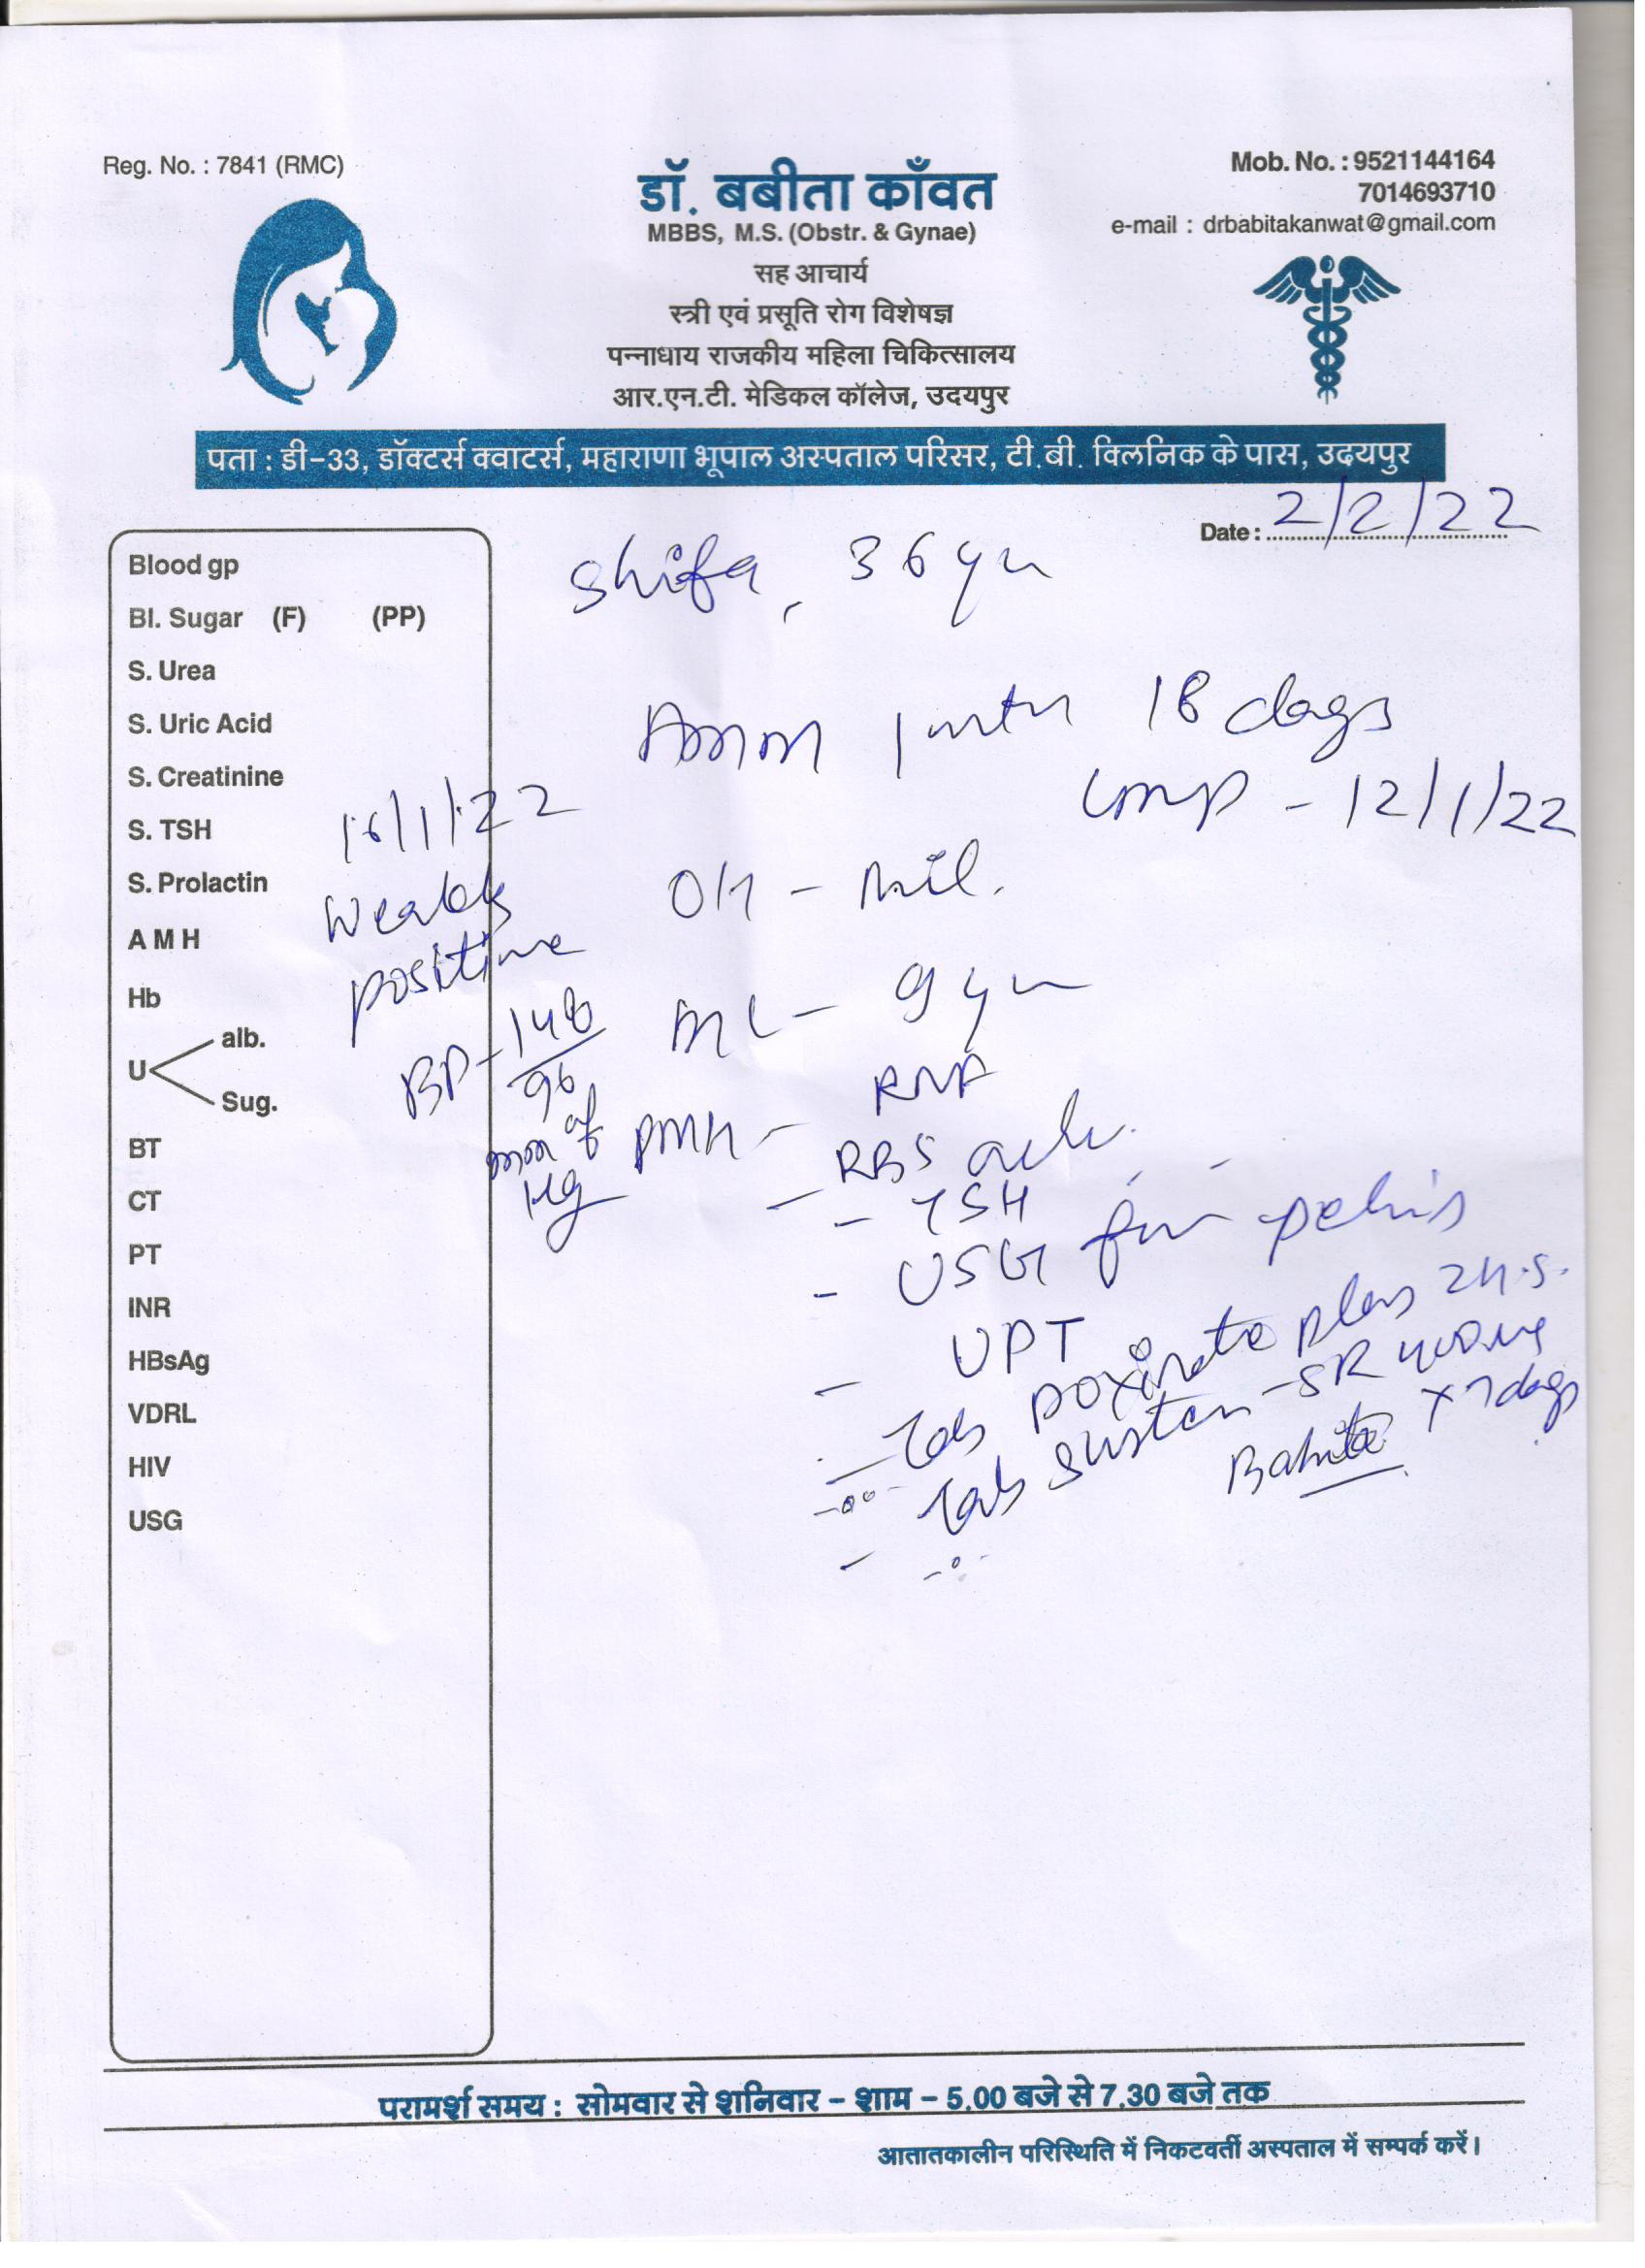 Reg. No. : 7841 (RMC)
डॉ. बबीता काँवत
MBBS, M.S. (Obstr. & Gynae)
सह आचार्य
स्त्री एवं प्रसूति रोग विशेषज्ञ
पन्नाधाय राजकीय महिला चिकित्सालय
आर.एन.टी. मेडिकल कॉलेज, उदयपुर
Mob. No. : 9521144164
7014693710
e-mail : drbabitakanwat@gmail.com
पता : डी-33, डॉक्टर्स क्वाटर्स, महाराणा भूपाल अस्पताल परिसर, टी.बी. क्लिनिक के पास, उदयपुर
Date : 2/2/22
Blood gp
Bl. Sugar (F) (PP)
S. Urea
S. Uric Acid
S. Creatinine
S. TSH
S. Prolactin
A M H
Hb
U alb.
Sug.
BT
CT
PT
INR
HBsAg
VDRL
HIV
USG
16/1/22
Weakly
positive
BP - 
mm of
Hg
Shifa, 36 yr
1 mth 18 days
LMP - 12/1/22
OH - Nil.
ML - 9 yr
PMH -
- RBS
- TSH
- USG for pelvis
- UPT
- Tab Doxinate plus 2 H.S.
- Tab Susten - SR 400mg
x 7 days
Babita
परामर्श समय : सोमवार से शनिवार - शाम - 5.00 बजे से 7.30 बजे तक
आतातकालीन परिस्थिति में निकटवर्ती अस्पताल में सम्पर्क करें।